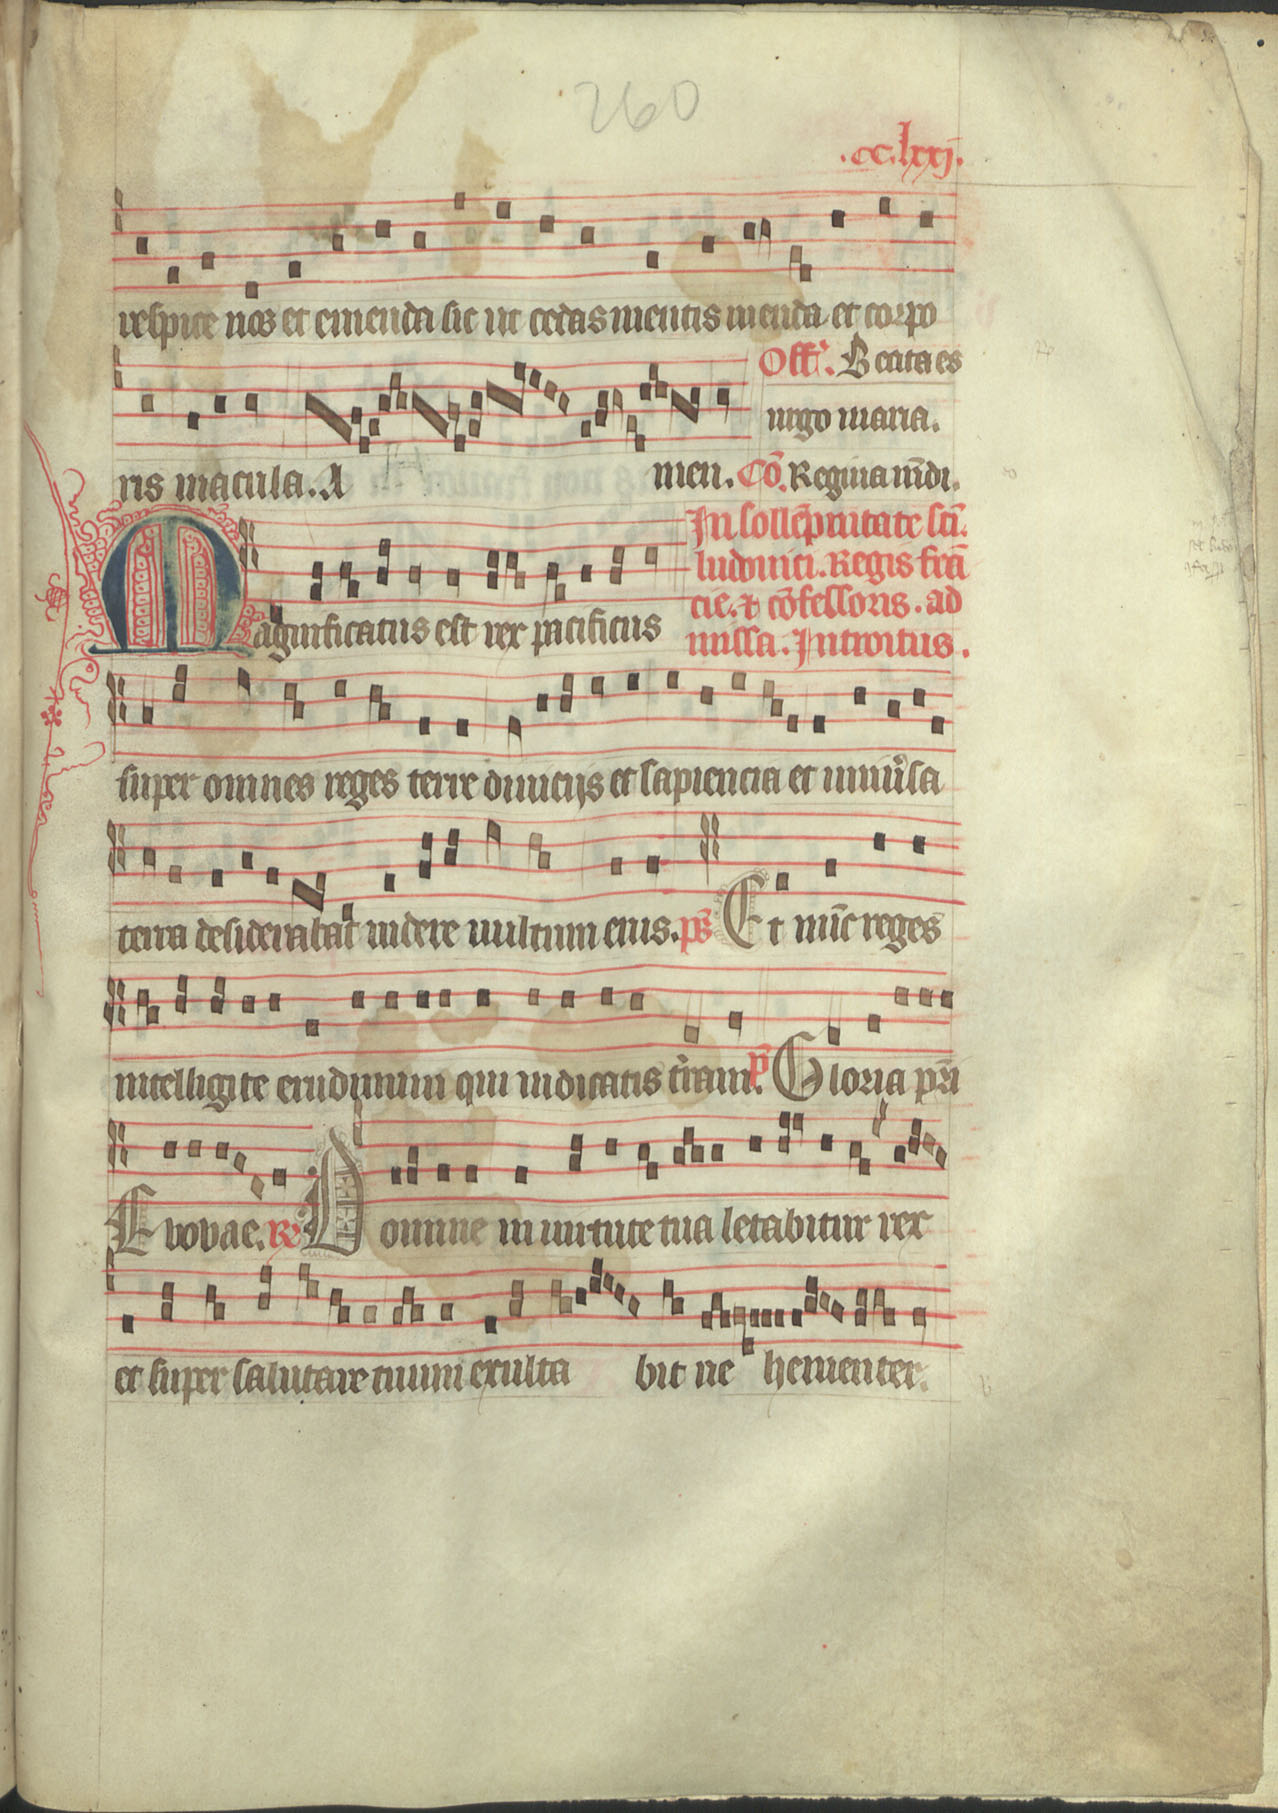 260
.cc.lxxj.
respice nos et emenda sic ut cedas mentis menda et corpo
Off̄. Beata es
uirgo maria.
ris macula. A men. Cō. Regina mūdi.
In sollēpnitate sc̄i.
ludouici. Regis frā
cie. ⁊ cōfessoris. ad
missa. Introitus.
Magnificatus est rex pacificus
super omnes reges terre diuicijs et sapiencia et uniuͥsa
terra desiderabat uidere uultum eius. ps̄ Et nūc reges
intelligite erudimini qui iudicatis tͬram. Gloria pr̄i
Evovae. R Domine in uirtute tua letabitur rex
et super salutare tuum exulta bit ve hementer.